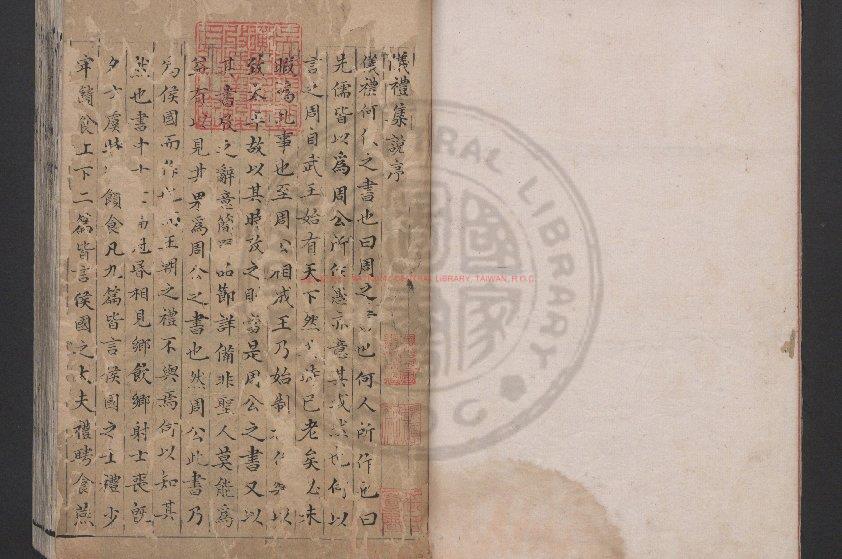 儀禮集說序
儀禮何代之書也曰周之也何人所作也曰
先儒皆以爲周公所作愚亦意其或然也何以
言之周自武王始有天下然已老矣必未
暇爲此事也至周公相成王乃始制以
致太平故以其時攷之則當是周公之書又以
其書攷之辭意簡品節詳備非聖人莫能爲
益有以見其果爲周公之書也然周公此書乃
爲侯國而作也而王朝之禮不與焉何以知其
然也書十七冠昏相見鄉飲鄉射士喪既
夕士虞饋食凡九篇皆言侯國之士禮少
牢饋食上下二篇皆言侯國之大夫禮聘食燕
CENTRAL LIBRARY, TAIWAN, R.O.C.
RAL LIBRARY